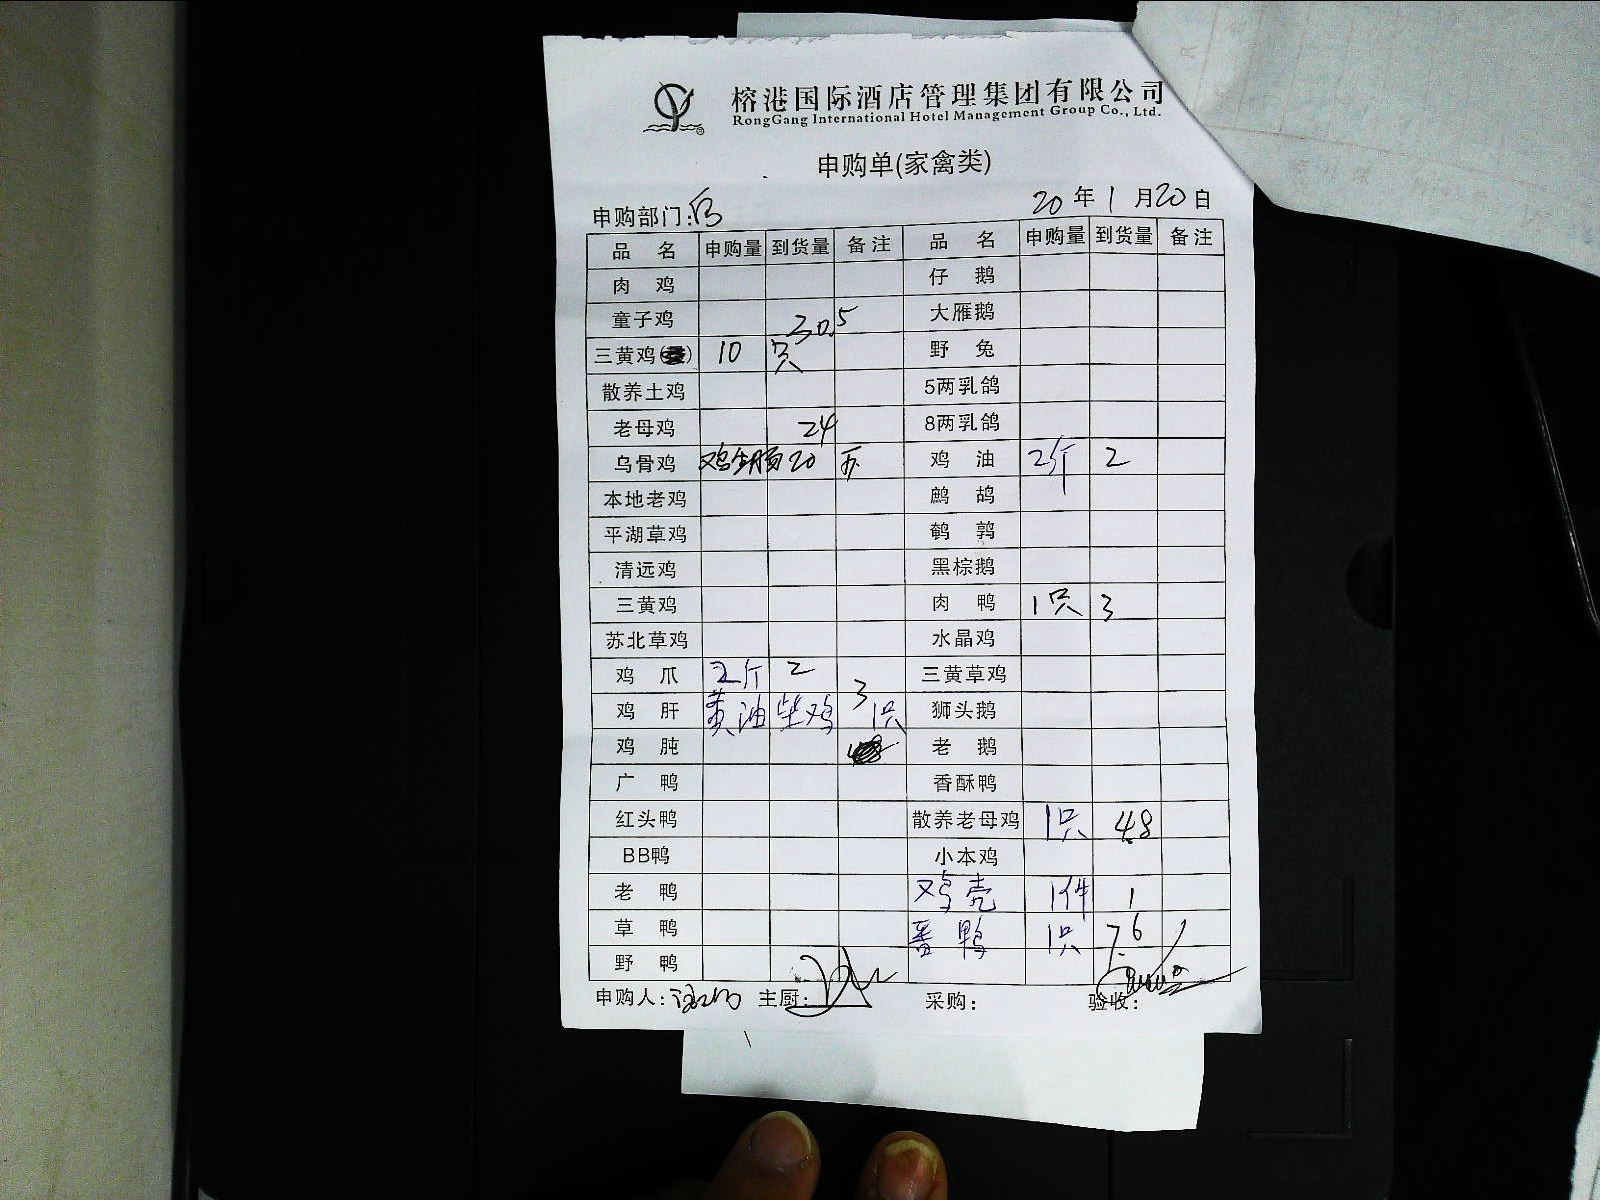 榕港国际酒店管理集团有限公司
RongGang International Hotel Management Group Co., Ltd.
申购单(家禽类)
申购部门: 20年1月20日
品名 申购量 到货量 备注 品名 申购量 到货量 备注
肉鸡 仔鹅
童子鸡 30.5 大雁鹅
三黄鸡( ) 10只 野兔
散养土鸡 5两乳鸽
老母鸡 24 8两乳鸽
乌骨鸡 鸡 肠 20 鸡油 2斤 2
本地老鸡 鹧鸪
平湖草鸡 鹌鹑
清远鸡 黑棕鹅
三黄鸡 肉鸭 1只 3
苏北草鸡 水晶鸡
鸡爪 2斤 2 三黄草鸡
鸡肝 黄油柴鸡 3 1只 狮头鹅
鸡肫 老鹅
广鸭 香酥鸭
红头鸭 散养老母鸡 1只 4.8
BB鸭 小本鸡
老鸭 鸡壳 1件 1
草鸭 番鸭 1只 7.6
野鸭
申购人: 主厨: 采购: 验收: